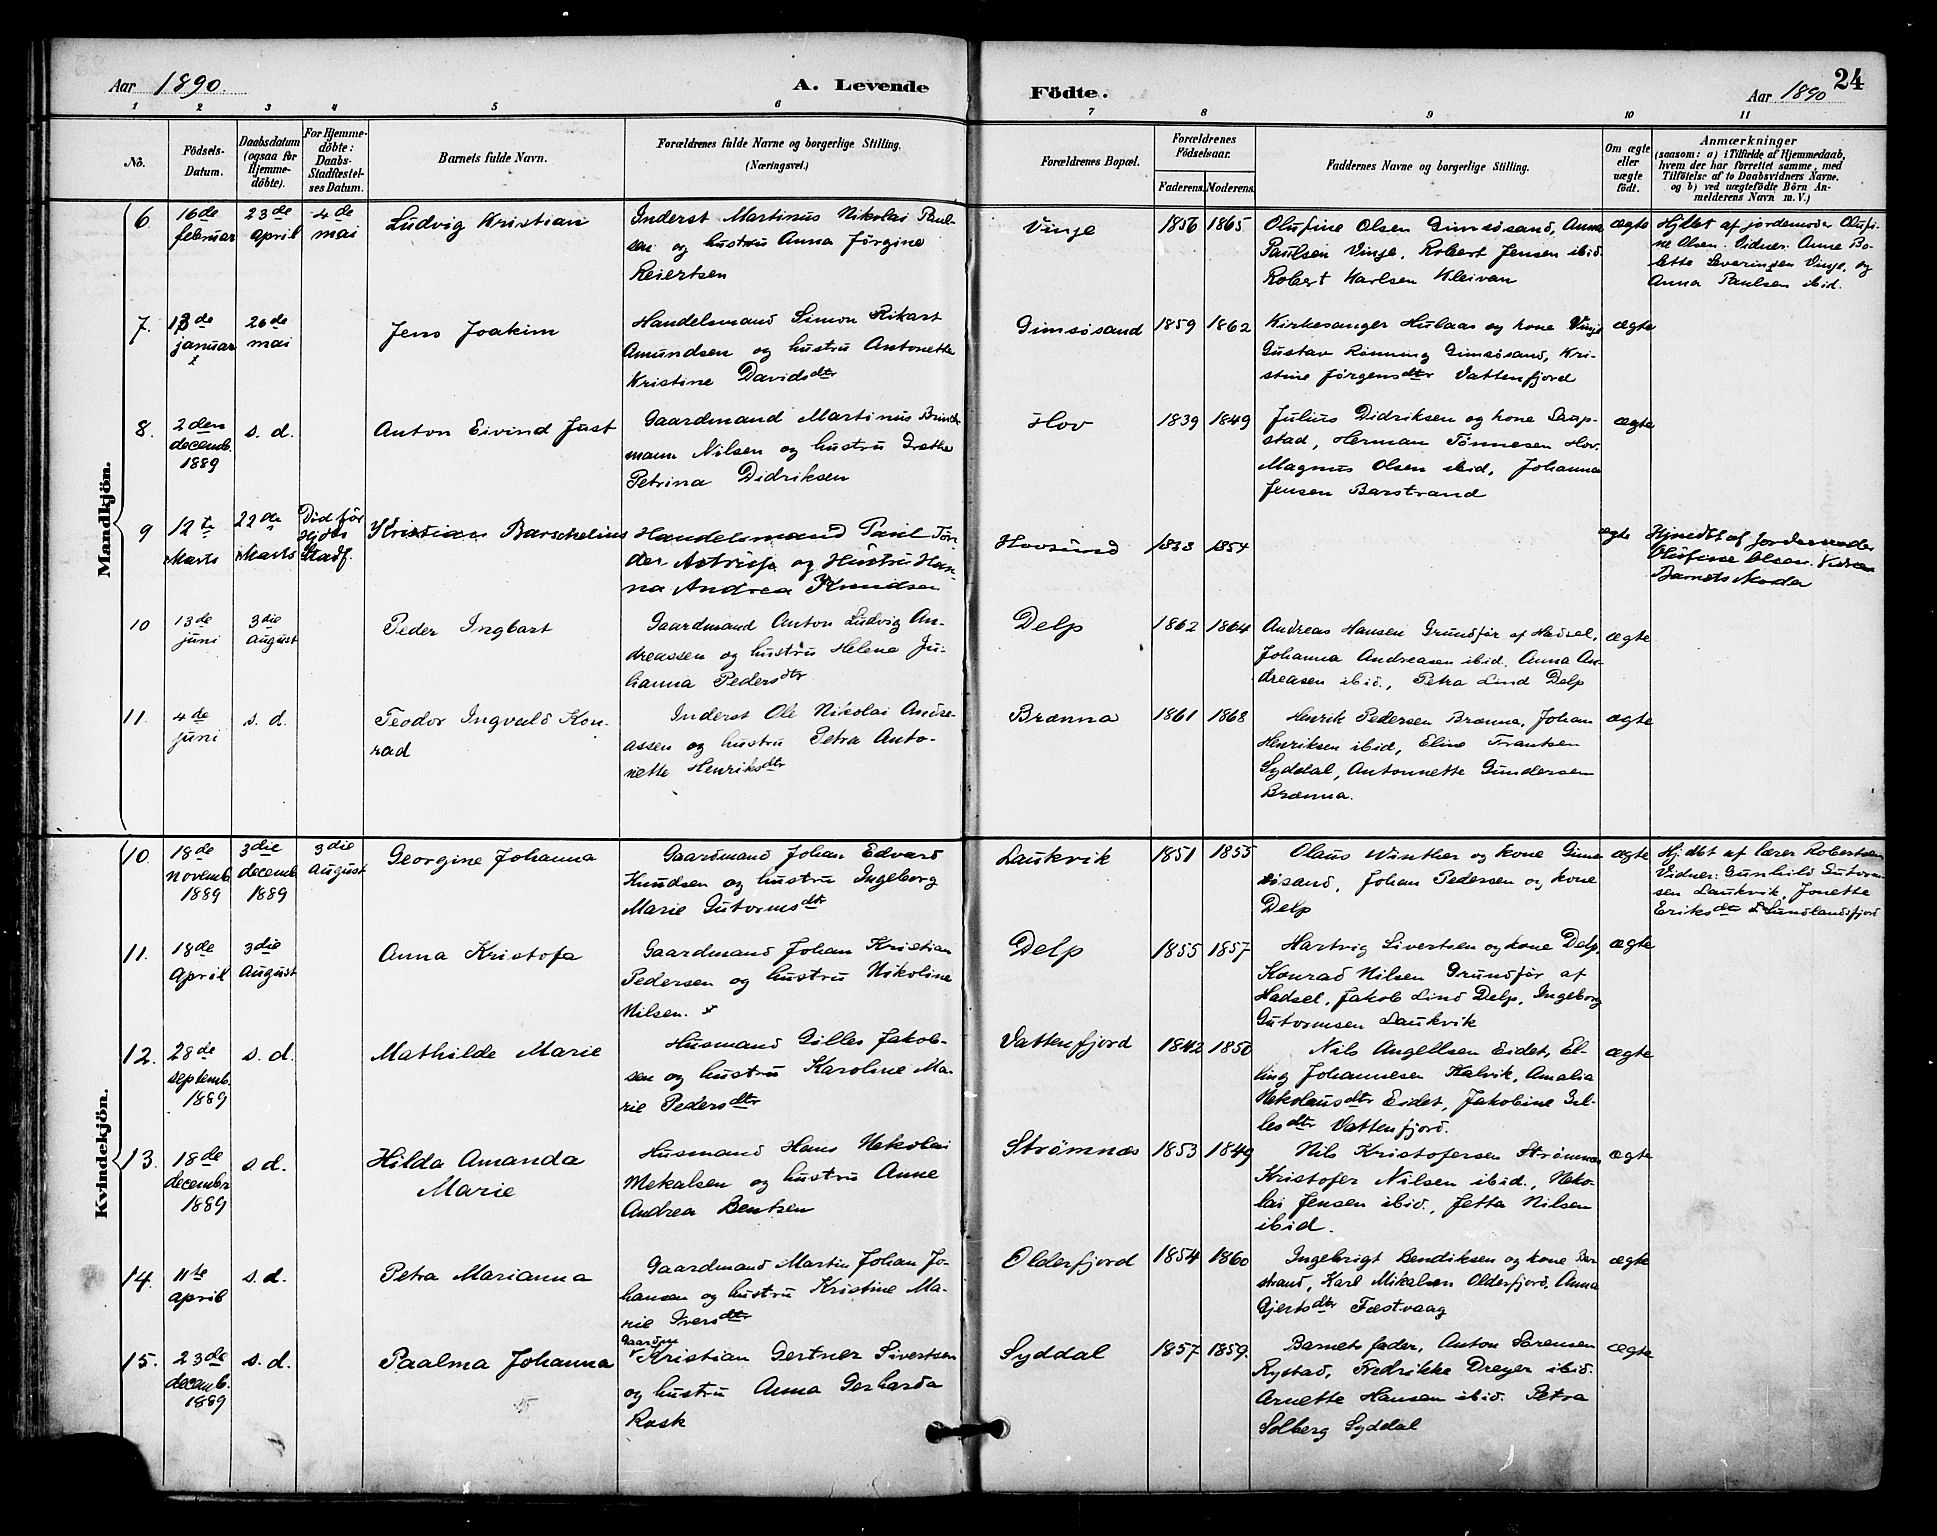 Aar 1890.
A. Levende
Födte.
Aar 1890
24
1 2 3 4 5 6 7 8 9 10 11
No.
Födsels-
Datum.
Daabsdatum
(ogsaa for
Hjemme-
döbte).
For Hjemme-
döbte:
Daabs-
Stadfæstel-
ses Datum.
Barnets fulde Navn.
Forældrenes fulde Navne og borgerlige Stilling.
(Næringsvei.)
Forældrenes Bopæl.
Forældrenes
Födselsaar.
Faderens. Moderens.
Faddernes Navne og borgerlige Stilling.
Om ægte
eller
uægte
födt.
Anmærkninger
(saasom: a) i Tilfælde af Hjemmedaab,
hvem der har forrettet samme, med
Tilföielse af to Daabsvidners Navne.
og b) ved uægtefödte Börn An-
melderens Navn m.V.)
Mandkjön.
6
16de
februar
23de
april
4de
mai
Ludvig Kristian
Inderst Martinus Nikolai Paul-
sen og hustru Anna Jørgine
Reiertsen
Vinje
1856 1865
Olufine Olsen Gimsøsand, Anna
Paulsen Vinje, Robert Jensen ibid.
Robert Karlsen Kleivan
ægte
Hjdbt af jordemoder Olufi-
ne Olsen. Vidner: Anne Bo-
lette Severinsen Vinje, og
Anna Paulsen ibid.
7.
januar
26de
mai
Jens Joakim
Handelsmand Simon Rikart
Amundsen og hustru Antonette
Kristine Davidsdtr
Gimsøsand
1859 1862
Kirkesanger Hulaas og kone Vinje
Gustav Rønning Gimsøsand, Kri-
stine Jørgensdtr Vattenfjord
ægte
8.
2den
decemb.
1889
s. d.
Anton Eivind Just
Gaardmand Martinus Brinck-
mann Nilsen og hustru Grethe
Petrina Didriksen
Hov
1839 1849
Julius Didriksen og kone Saup-
stad, Herman Tønnesen Hov.
Magnus Olsen ibid, Johanna
Jensen Barstrand
ægte
9
12te
Marts
22de
Marts
Død før
Stadf.
Kristian Barschelius
Handelsmand Paul Tøn-
der Astrup og Hustru Han-
na Andrea Knudsen
Hovsund
1833 1854
ægte
Hjmdbt af Jordemoder
Olufine Olsen.
Barnets Moder
10
13de
juni
3die
august
Peder Ingbart
Gaardmand Anton Ludvig An-
dreassen og hustru Helene Ju-
hanna Pedersdtr
Delp
1862 1864
Andreas Hansen Grundfør af Hadsel,
Johanna Andreasen ibid. Anna An-
dreasen ibid., Petra Lind Delp
ægte
11.
4de
juni
s. d.
Teodor Ingvald Kon-
rad
Inderst Ole Nikolai Andre-
assen og hustru Petra Anto-
nette Henriksdtr
Brænna
1861 1868
Henrik Pedersen Brænna, Johan
Henriksen ibid, Eline Frantsen
Syddal, Antonnette Gundersen
Brænna.
ægte
Kvindekjön.
10.
18de
novemb.
1889
3die
decemb.
1889
3die
august
Georgine Johanna
Gaardmand Johan Edvard
Knudsen og hustru Ingeborg
Marie Gutormsdtr
Laukvik
1851 1855
Olaus Winther og kone Gims-
øsand, Johan Pedersen og kone
Delp
ægte
Hjdbt af lærer Robertsen
Vidner: Gunhild Gutorm-
sen Laukvik, Jonette
Eriksdtr Sundlandsfjord
11.
18de
april
3die
august
Anna Kristofa
Gaardmand Johan Kristian
Pedersen og hustru Nikoline
Nilsen.
Delp
1855 1857
Hartvig Sivertsen og kone Delp,
Konrad Nilsen Grundfør af
Hadsel, Jakob Lind Delp, Ingeborg
Gutormsen Laukvik
ægte
12.
28de
septemb.
1889
s. d.
Mathilde Marie
Husmand Gilles Jakob-
sen og hustru Karoline Ma-
rie Pedersdtr
Vattenfjord
1842 1850
Nils Angellsen Eidet, El-
ling Johannesen Kalvik, Amalia
Nekolausdtr Eidet, Jakobine Gil-
lesdtr Vattenfjord.
ægte
13.
18de
decembr
1889
s d.
Hilda Amanda
Marie
Husmand Hans Nekolai
Mekalsen og hustru Anne
Andrea Bentsen
Strømnæs
1853 1849
Nils Kristofersen Strømnæs
Kristofer Nilsen ibid., Neko-
lai Jensen ibid., Jetta Nilsen
ibid.
ægte
14.
11te
april
s. d.
Petra Marianna
Gaardmand Martin Johan Jo-
hansen og hustru Kristine Ma-
rie Iversdtr
Olderfjord
1854 1860
Ingebrigt Bendiksen og kone Bar-
strand, Karl Mikalsen Olderfjord, Anna
Gjertsdtr Fæstvaag
ægte
15.
23de
decemb.
1889
s. d.
Paalma Johanna
Gaardm
Kristian Gertner Sivertsen
og hustru Anna Gerharda
Rask
Syddal
1857 1859.
Barnets fader, Anton Sørensen
Rystad, Fredrikke Dreyer ibid.
Arnette Hansen ibid. Petra
Solberg Syddal
ægte